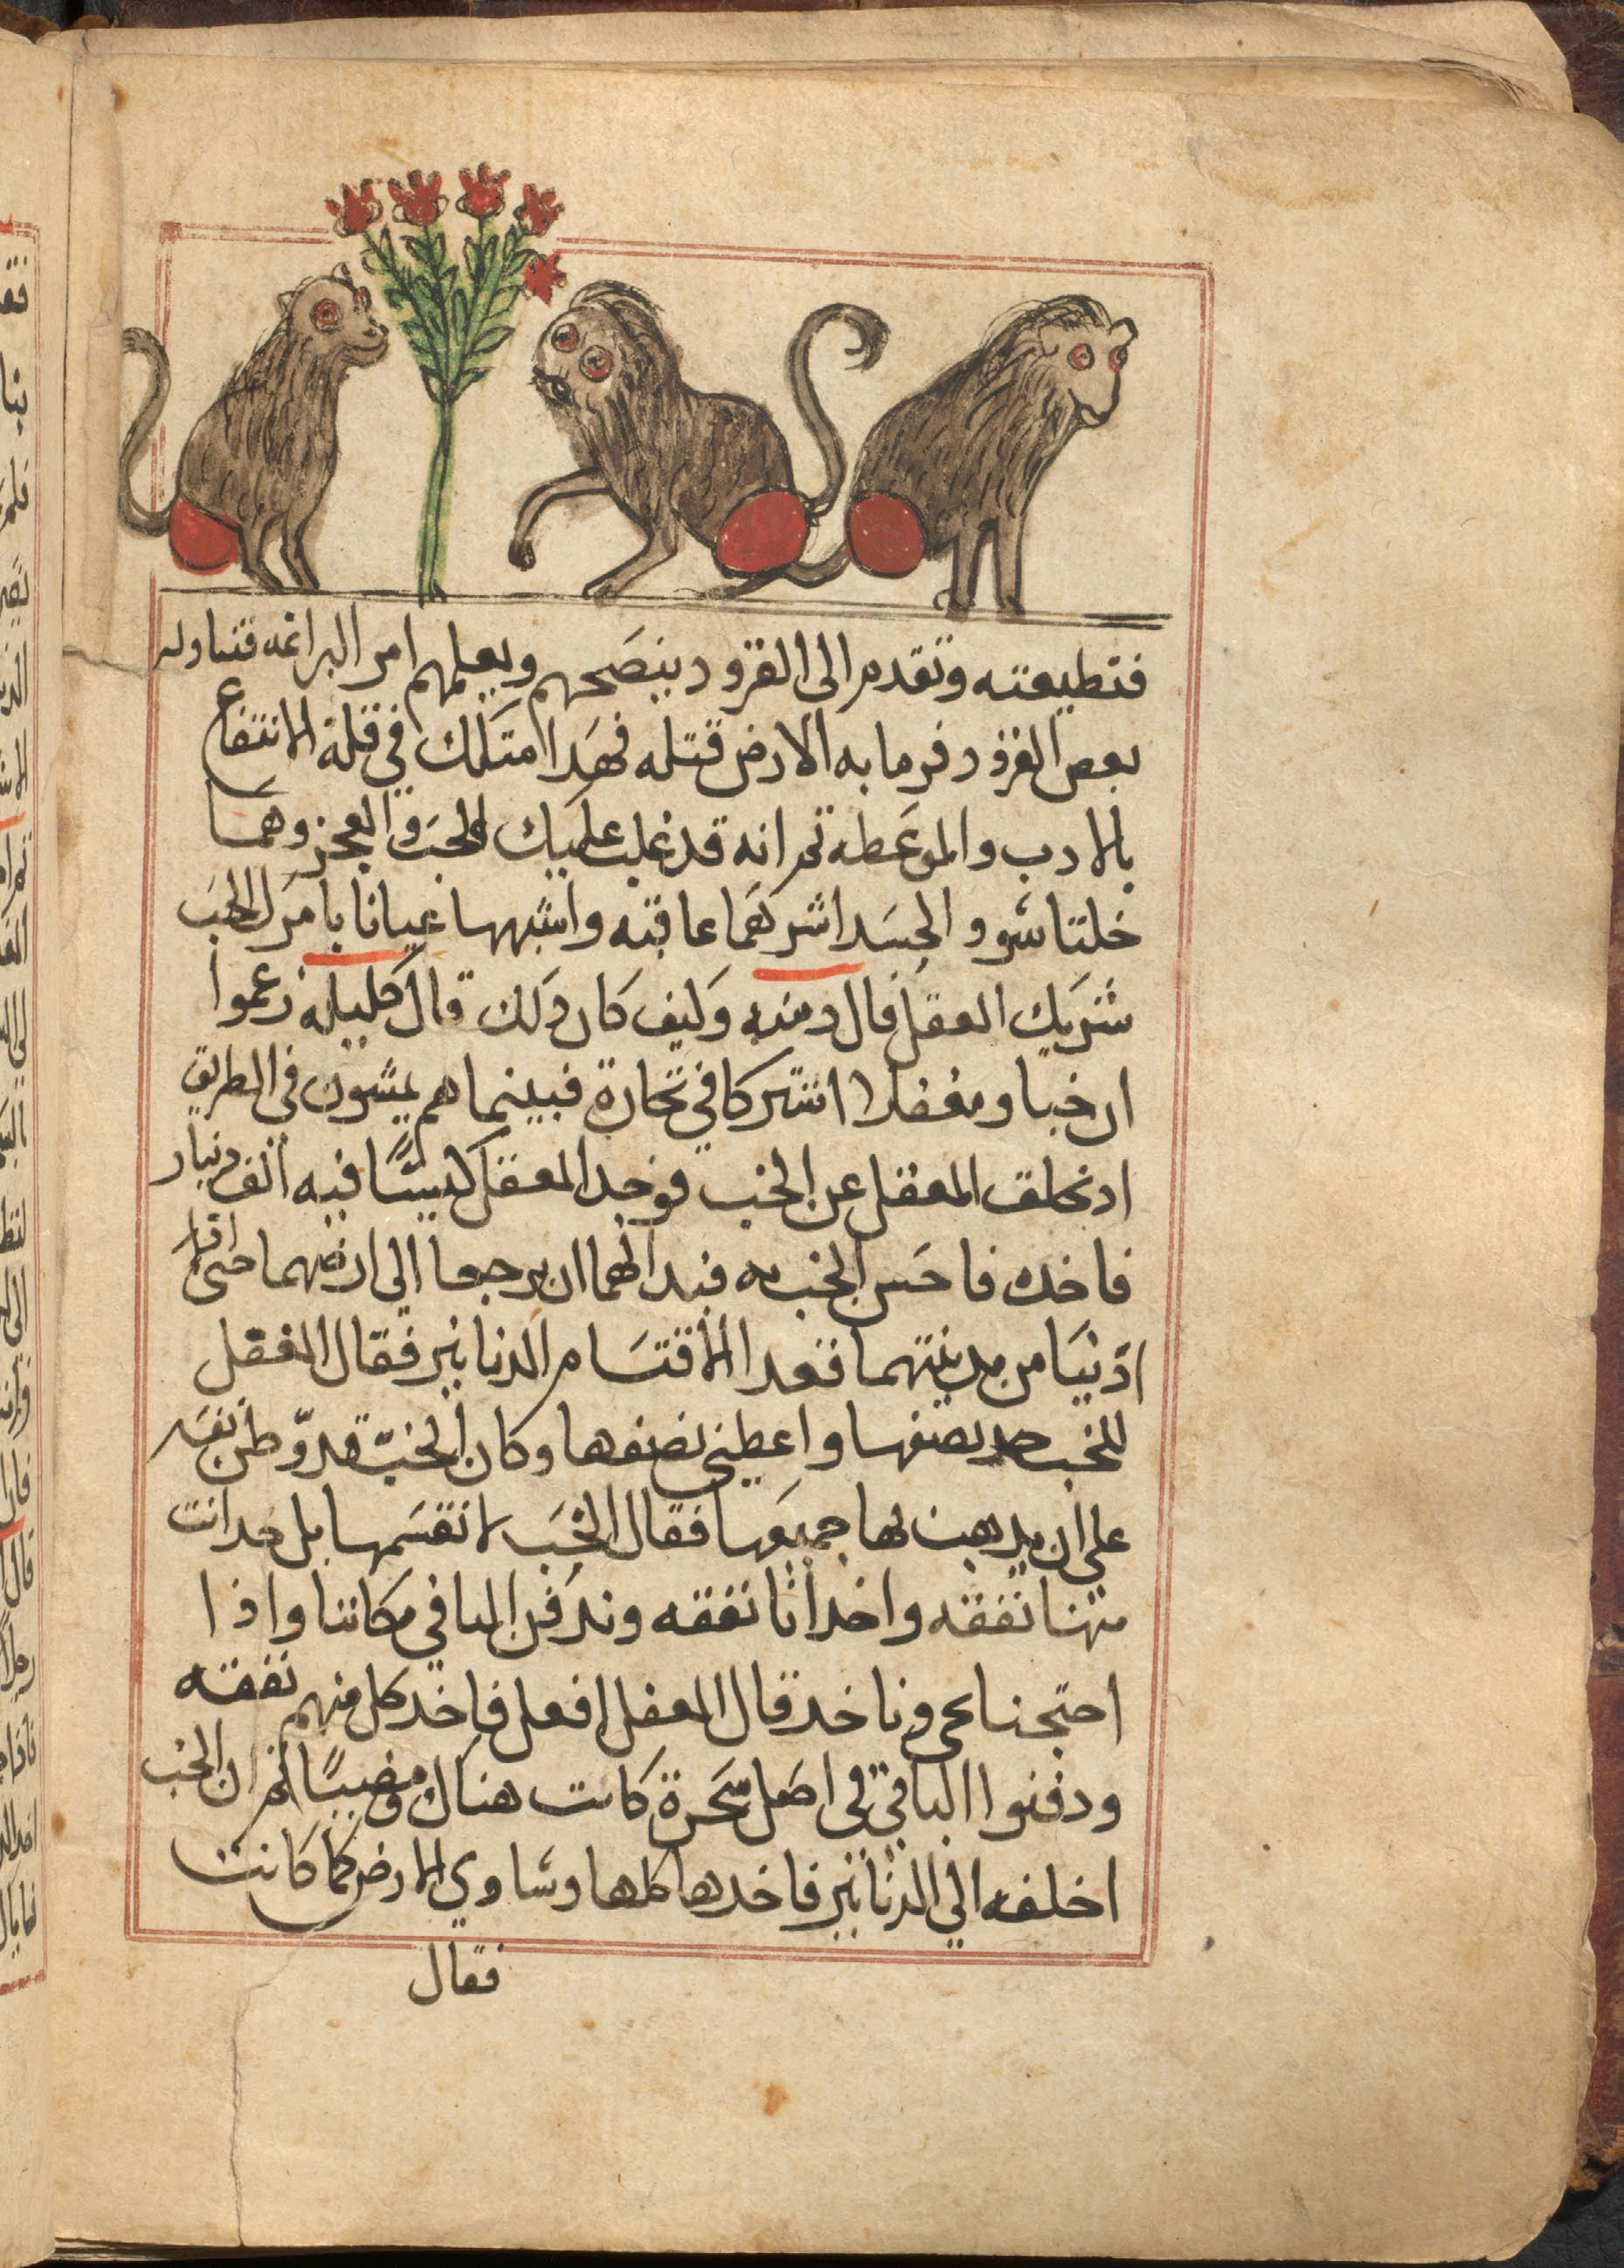 فتطيعته وتقدم الى القرود ينصحهم ويعلمهم امر البراغه فتناوله
بعض القرود فرما به الارض قتله فهدا متلك في قلة الانتفاع
بالادب والموعطه تم انه قد غلب عليك الخب والعجز وهما
خلتا شوو الجسد اشرهما عاقبه واشبهها عيانا بامر الخب
شريك المعقل قال دمنه وكيف كان دلك قال كليله زعموا
ان خبا ومغفلا اشتركا في تجارة فبينما هم يمشون في الطريق
اد تخلف المغفل عن الخب فوجد المعقل كيسًا فيه الف دينار
فاخده فاحس الخب به فبدا لهما ان يرجعا الي ارضهما حتى ادا
ادنيا من مدينتهما قعدا لاقتسام الدنانير فقال المغفل
للخب خد نصفها واعطيني نصفها وكان الخبّ قد وّطن نفسه
على ان يدهب بها جميعها فقال الخب لا نقسمها بل خد انت
منها نفقه واخد انا نفقه وندفن الباقي مكاننا واذا
احتجنا نجي وناخد قال المعفل افعل فاخد كل منهم نفقته
ودفنوا الباقي في اصل شجرة كانت هناك ثم ان الخب
اخلفه الي الدنانير فاخدها كلها وساوي الارض كما كانت
فقال